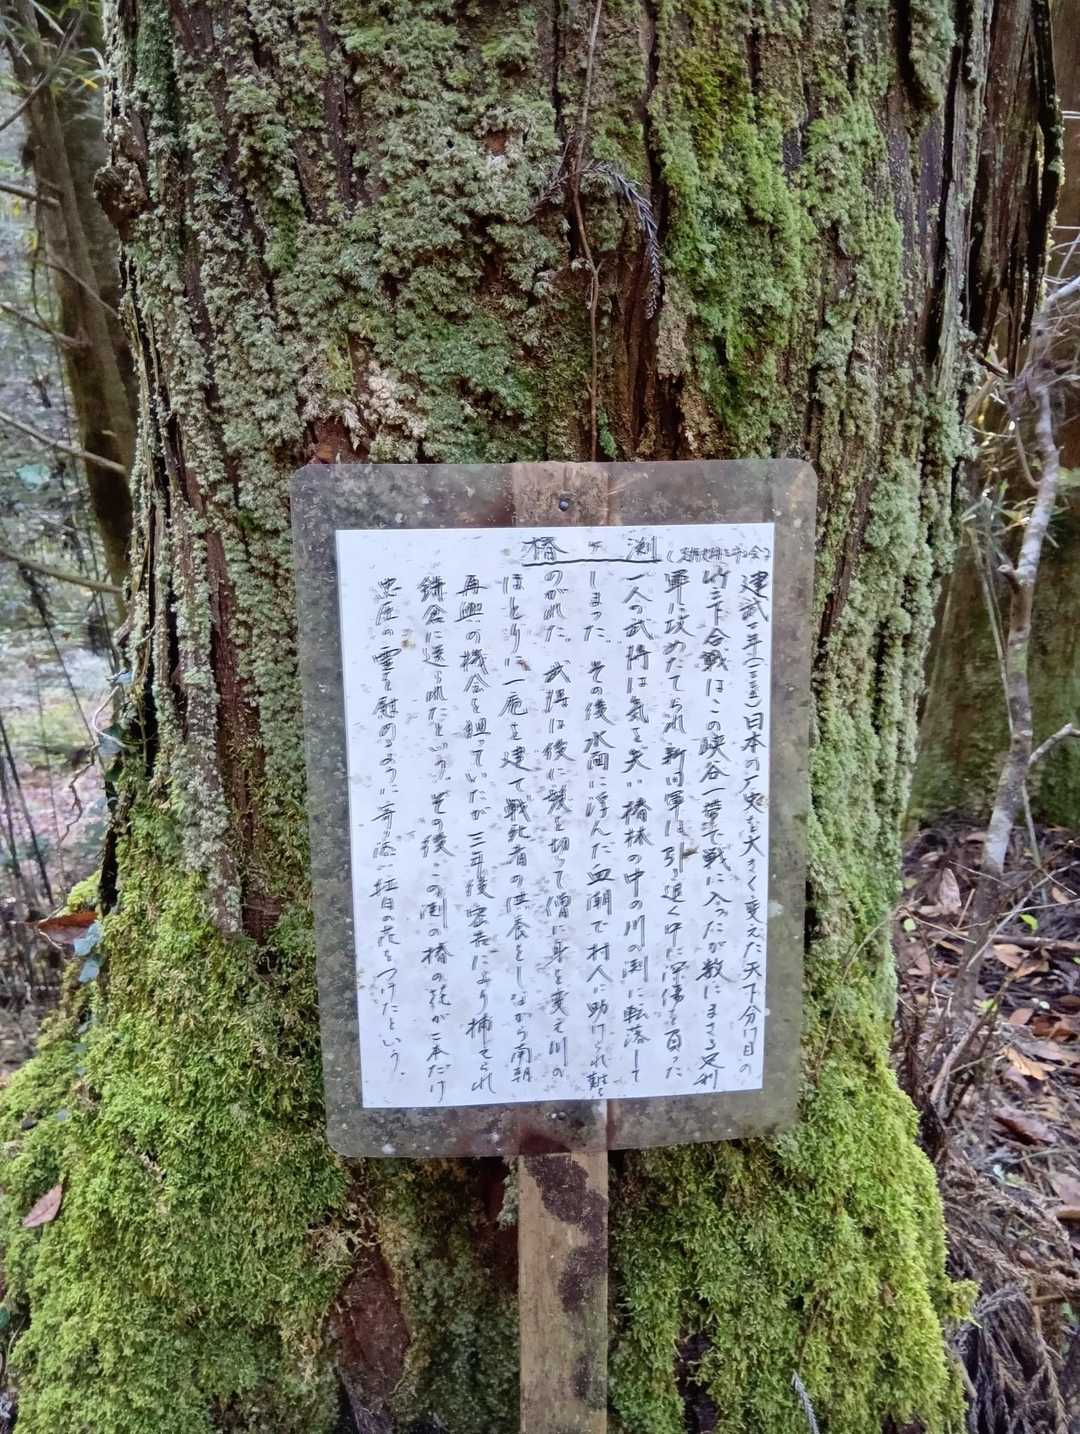 椿ヶ渕
建武二年(一三三五)日本の歴史を大きく変えた天下分け目の
竹之下合戦はこの峡谷一帯で戦に入ったが数にまさる足利
軍に攻めたてられ新田軍は引き退く中に深傷を負った
一人の武将は気を失い椿林の中の川の渕に転落して
しまった。その後水面に浮んだ血潮で村人に助けられ難を
のがれた。武将は後に髪を切って僧に身を変え川の
ほとりに一庵を建て戦死者の供養をしながら南朝
再興の機会を狙っていたが三年後密告により捕えられ
鎌倉に送られたという。その後、この渕の椿の花が二本だけ
忠臣の霊を慰めるように寄添い紅白の花をつけたという。